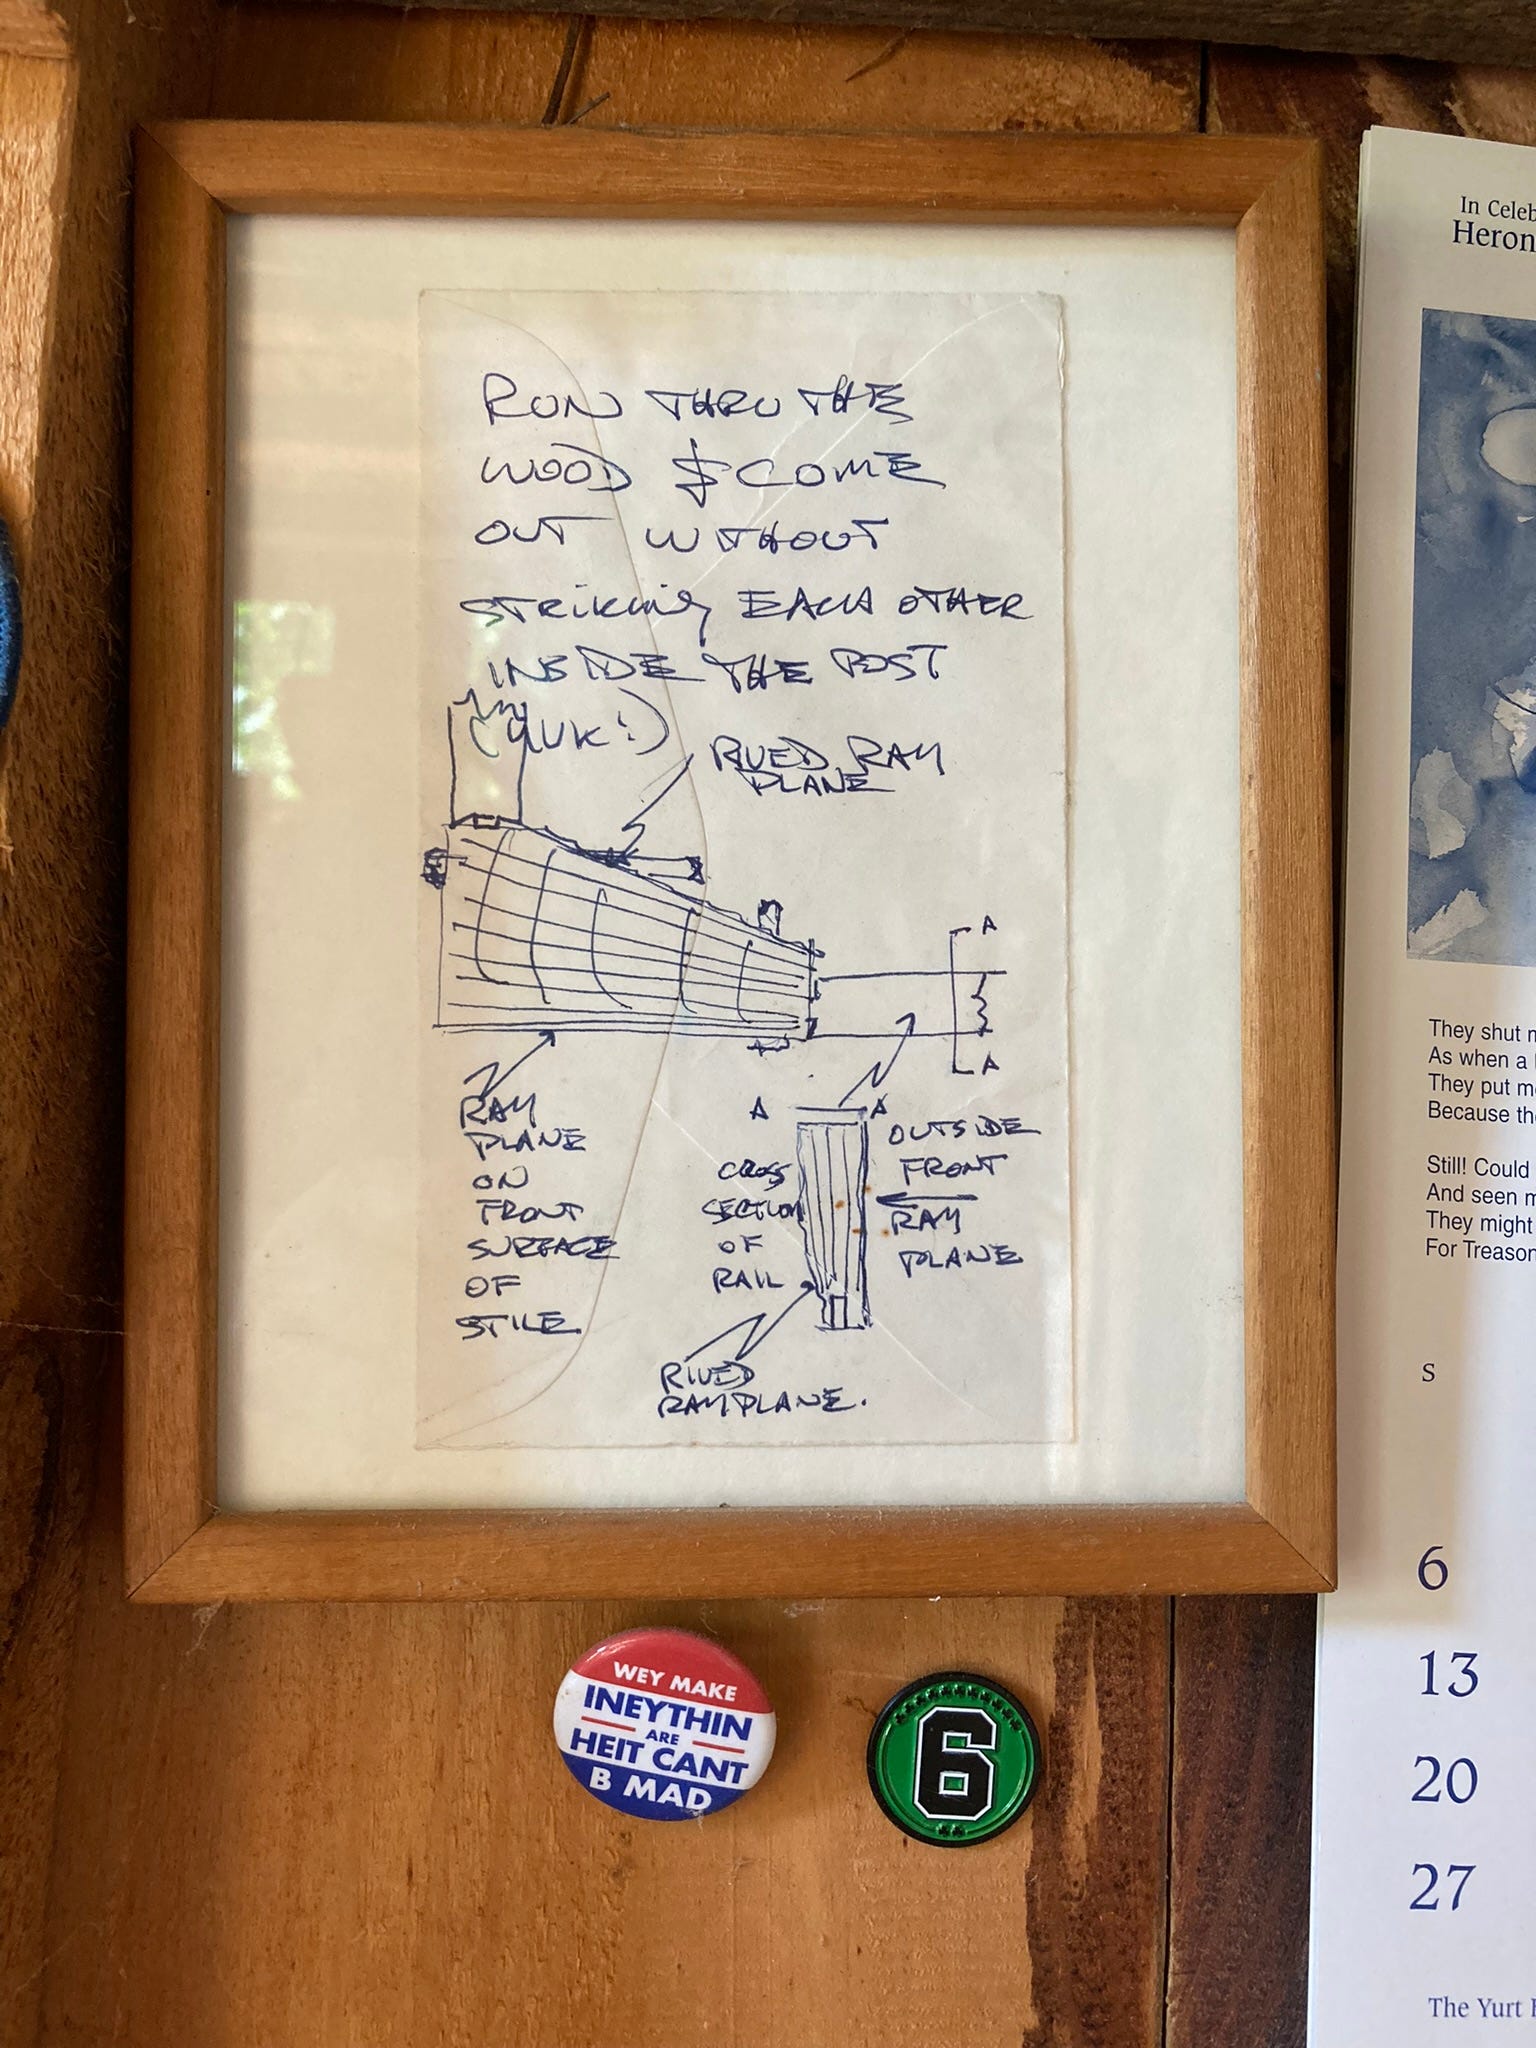 RUN THRU THE
WOOD & COME
OUT WITHOUT
STRIKING EACH OTHER
INSIDE THE POST
RIVED RAY
PLANE
A
A
RAY
PLANE
ON
FRONT
SURFACE
OF
STILE
A
A
CROSS
SECTION
OF
RAIL
OUTSIDE
FRONT
RAY
PLANE
RIVED
RAY PLANE.
WEY MAKE
INEYTHIN
ARE
HEIT CANT
B MAD
6
In Celeb
Heron
They shut m
As when a
They put me
Because the
Still! Could
And seen m
They might
For Treason
S
6
13
20
27
The Yurt